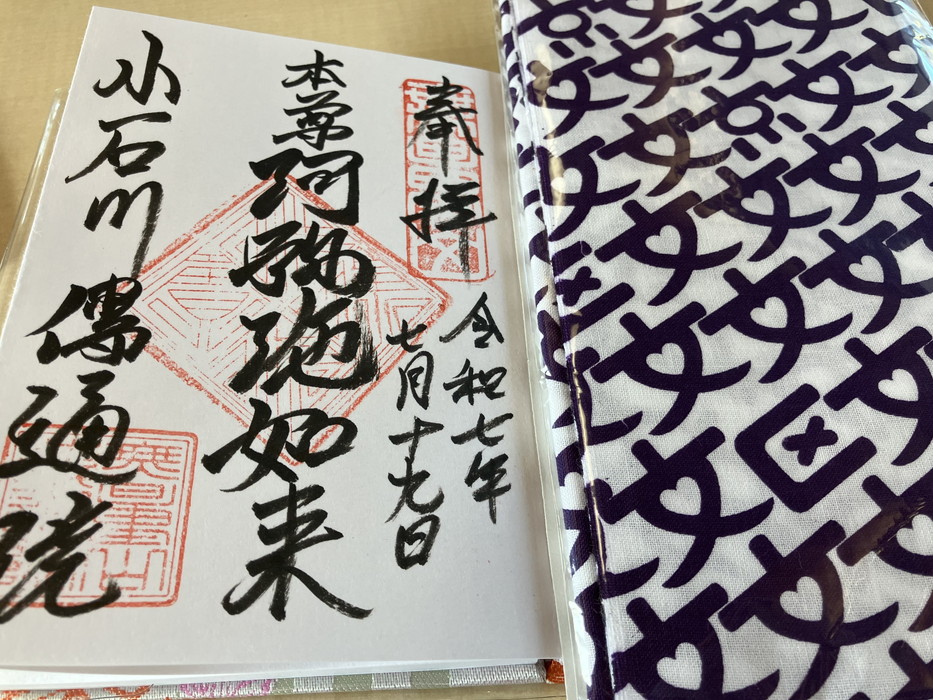 奉拝
令和七年
七月十九日
本尊 阿弥陀如来
小石川 傳通院